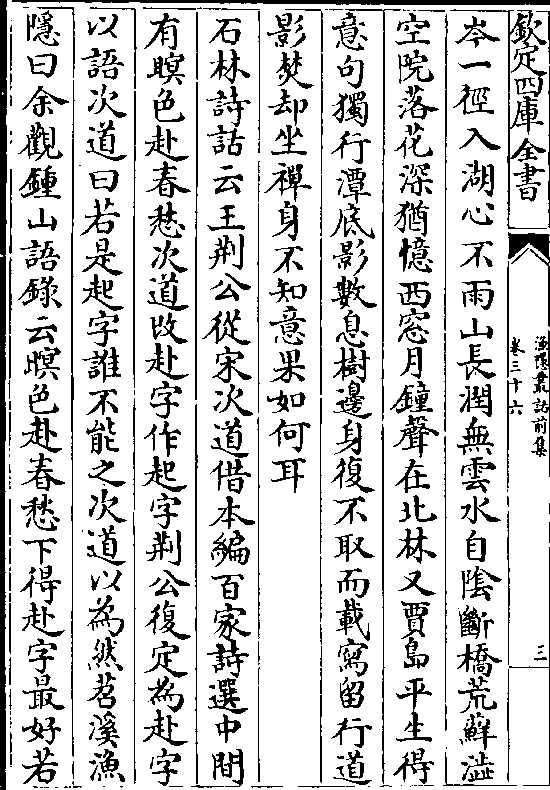 欽定四庫全書
漁隱叢話前集
卷三十六
三
岑一徑入湖心不雨山長潤無雲水自陰斷橋荒蘚澁
空院落花深猶憶西窓月鐘聲在北林又賈島平生得
意句獨行潭底影數息樹邊身復不取而載寫留行道
影焚却坐禪身不知意果如何耳
石林詩話云王荆公從宋次道借本編百家詩選中間
有暝色赴春愁次道改赴字作起字荆公復定為赴字
以語次道曰若是起字誰不能之次道以為然苕溪漁
隱曰余觀鍾山語錄云暝色赴春愁下得赴字最好若